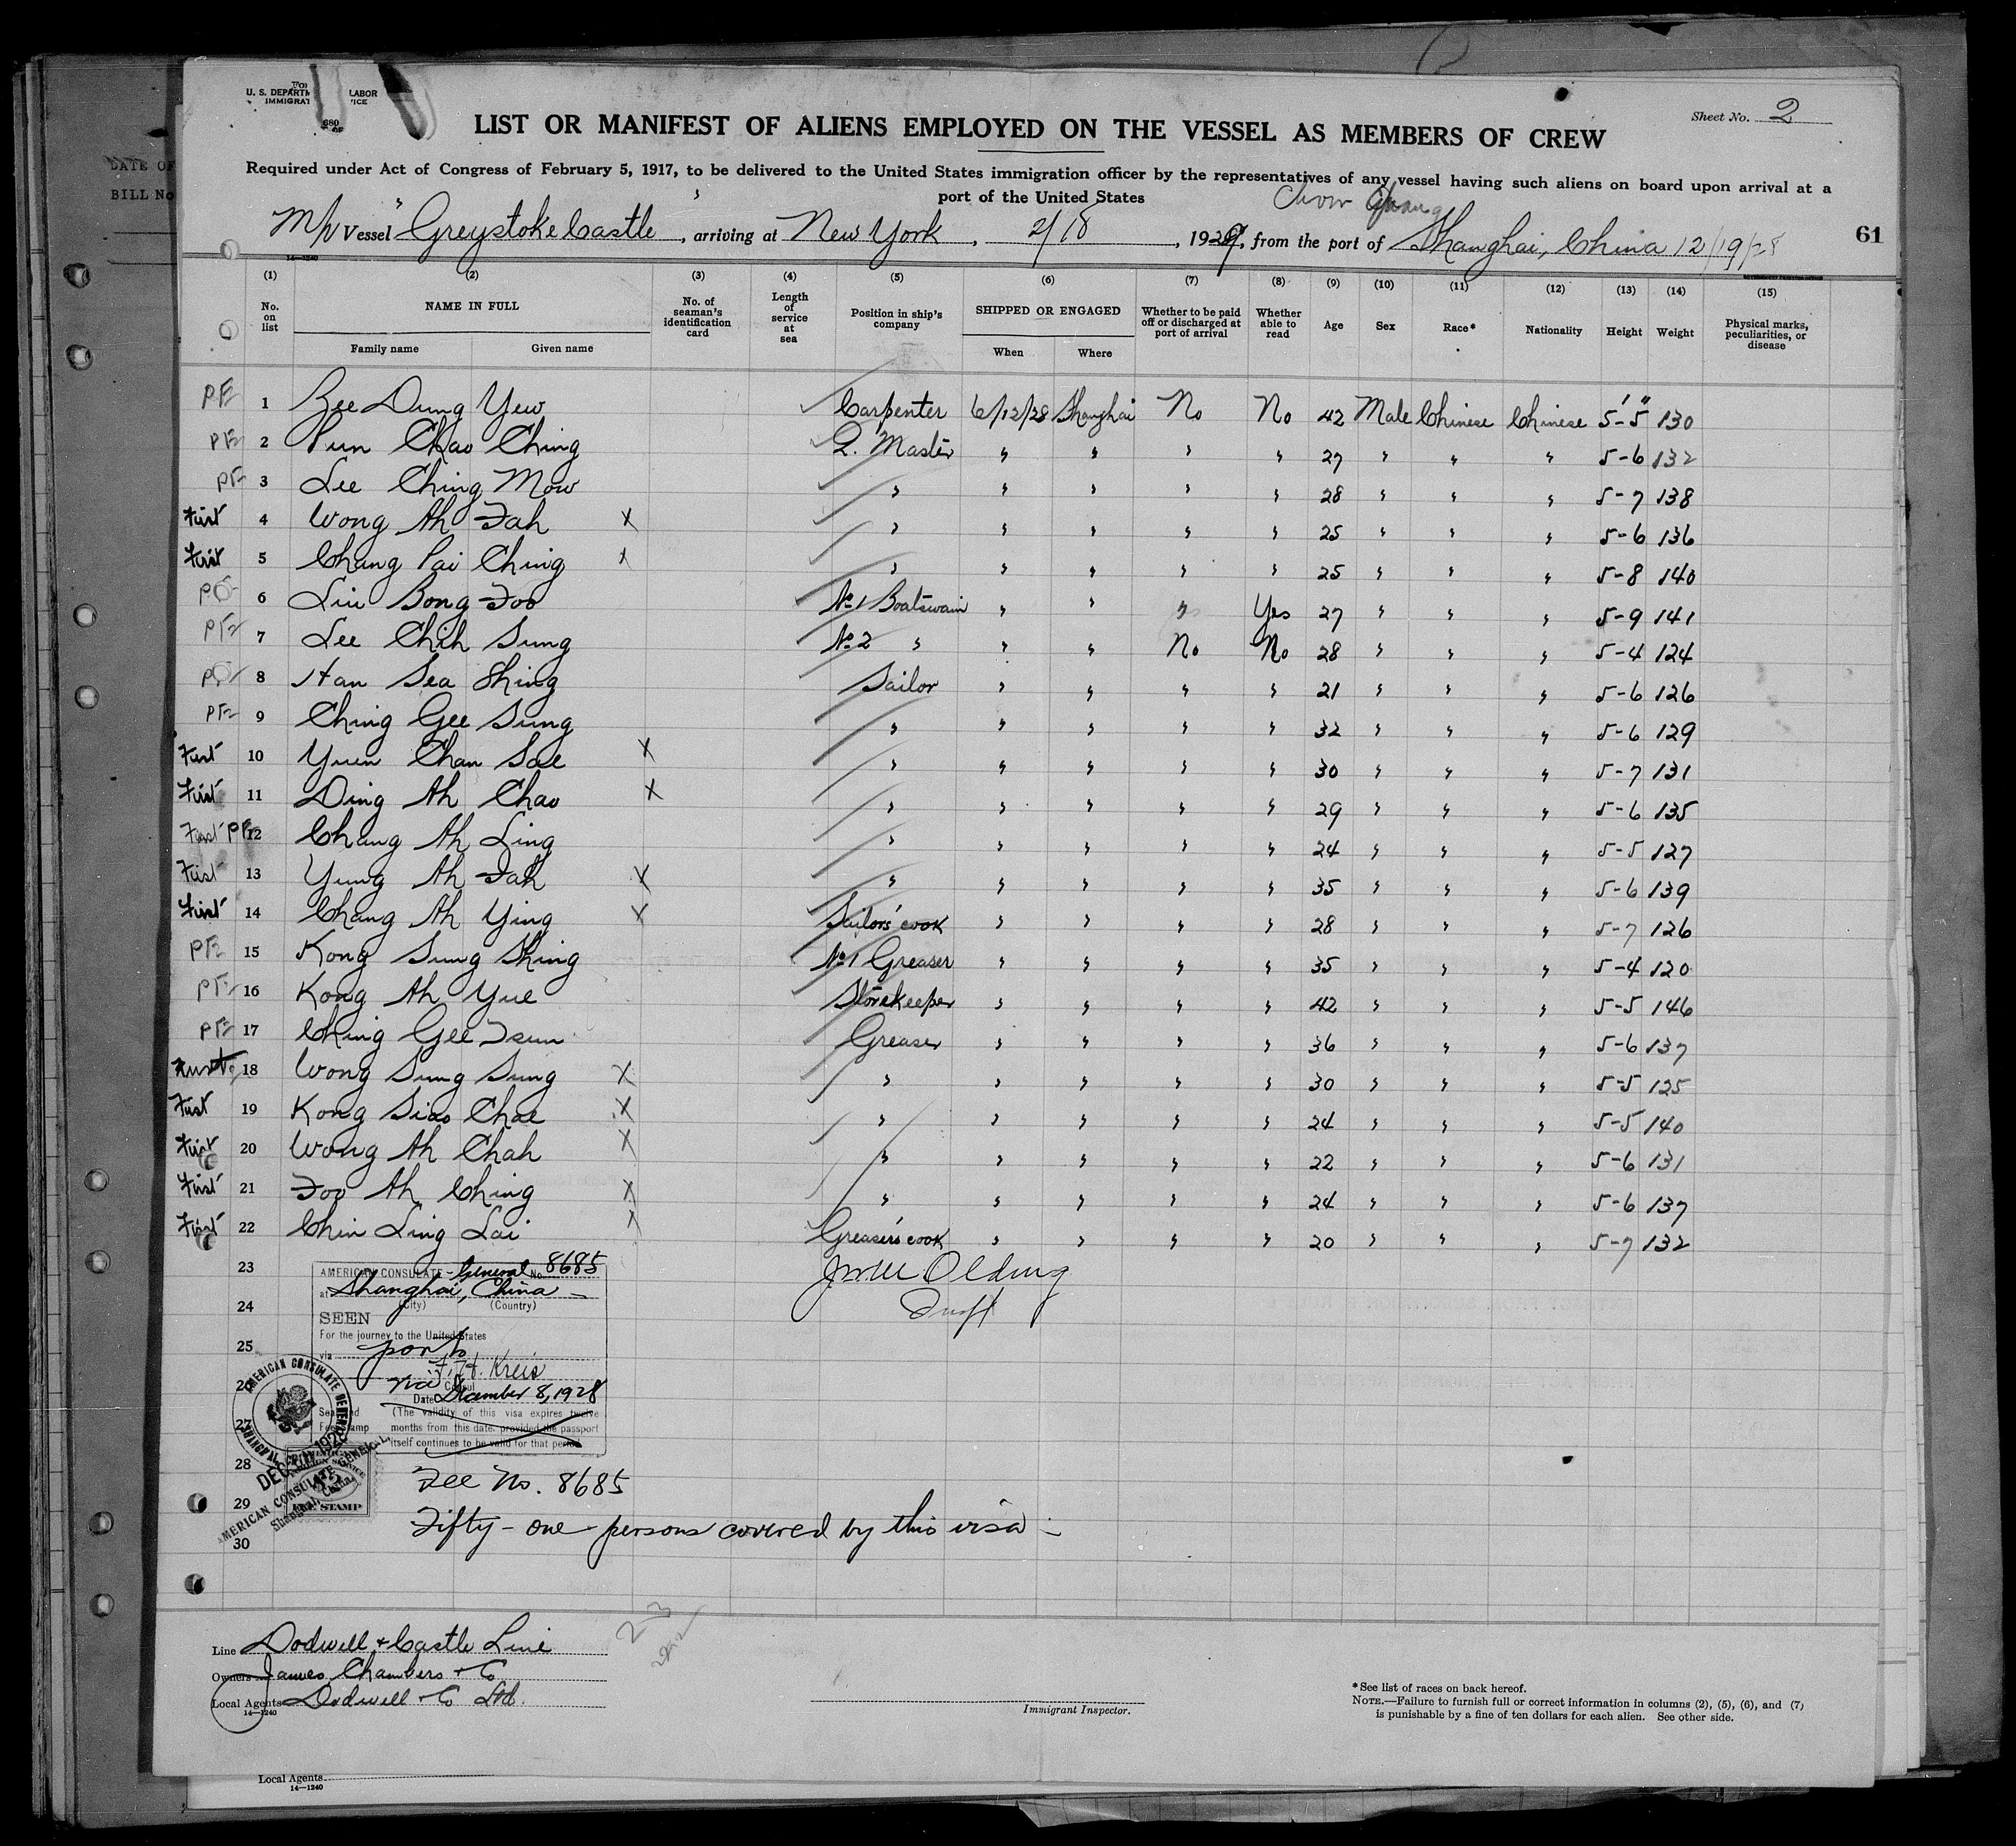 U. S. DEPARTM LABOR
IMMIGRAT VICE
680
Sheet No. 2
LIST OR MANIFEST OF ALIENS EMPLOYED ON THE VESSEL AS MEMBERS OF CREW
Required under Act of Congress of February 5, 1917, to be delivered to the United States immigration officer by the representatives of any vessel having such aliens on board upon arrival at a
port of the United States
M/V Vessel "Greystoke Castle", arriving at New York, 2/18, 1929, from the port of Shanghai, China 12/19/28
61
14—1240
(1) (2) (3) (4) (5) (6) (7) (8) (9) (10) (11) (12) (13) (14) (15)
No. on list NAME IN FULL Family name Given name No. of seaman's identification card Length of service at sea Position in ship's company SHIPPED OR ENGAGED When Where Whether to be paid off or discharged at port of arrival Whether able to read Age Sex Race* Nationality Height Weight Physical marks, peculiarities, or disease
1 Zee Dung Yew Carpenter 6/12/28 Shanghai No No 42 Male Chinese Chinese 5'-5" 130
2 Pun Chao Ching Q. Master " " " " 27 " " " 5-6 132
3 Lee Ching Mow " " " " " 28 " " " 5-7 138
First 4 Wong Ah Fah X " " " " " 25 " " " 5-6 136
First 5 Chang Pai Ching X " " " " " 25 " " " 5-8 140
6 Liu Bong Foo No 1 Boatswain " " " Yes 27 " " " 5-9 141
7 Lee Chih Sung No 2 " " " No No 28 " " " 5-4 124
8 Han Sea Shing Sailor " " " " 21 " " " 5-6 126
9 Ching Gee Sung " " " " " 32 " " " 5-6 129
First 10 Yuen Chan Sae X " " " " " 30 " " " 5-7 131
First 11 Ding Ah Chao X " " " " " 29 " " " 5-6 135
First 12 Chang Ah Ling " " " " " 24 " " " 5-5 127
First 13 Yung Ah Fah X " " " " " 35 " " " 5-6 139
First 14 Chang Ah Ying X Sailors' cook " " " " 28 " " " 5-7 126
15 Kong Sung Shing No 1 Greaser " " " " 35 " " " 5-4 120
16 Kong Ah Yue Storekeeper " " " " 42 " " " 5-5 146
17 Ching Gee Tsun Greaser " " " " 36 " " " 5-6 137
First 18 Wong Sung Sung X " " " " " 30 " " " 5-5 125
First 19 Kong Siao Chae X " " " " " 24 " " " 5-5 140
First 20 Wong Ah Chah X " " " " " 22 " " " 5-6 131
First 21 Foo Ah Ching X " " " " " 24 " " " 5-6 137
First 22 Chin Ling Lai X Greaser's cook " " " " 20 " " " 5-7 132
23
24
25
26
27
28
29
30
Olding
AMERICAN CONSULATE-General No. 8685
at Shanghai, China
(City) (Country)
SEEN
For the journey to the United States
via ports
F. H. Kreis
Vice Consul
Date December 8, 1928
(The validity of this visa expires twelve
months from this date, provided the passport
itself continues to be valid for that period
AMERICAN CONSULATE GENERAL
SHANGHAI, CHINA
DEC 1928
AMERICAN CONSULATE GENERAL
Shanghai, China
FEE STAMP
Fee No. 8685
Fifty-one persons covered by this visa -
Line Dodwell & Castle Line
Owners James Chambers & Co
Local Agents Dodwell & Co Ltd.
14—1240
Immigrant Inspector.
*See list of races on back hereof.
NOTE.—Failure to furnish full or correct information in columns (2), (5), (6), and (7)
is punishable by a fine of ten dollars for each alien. See other side.
Local Agents
14—1240
DATE OF
BILL No